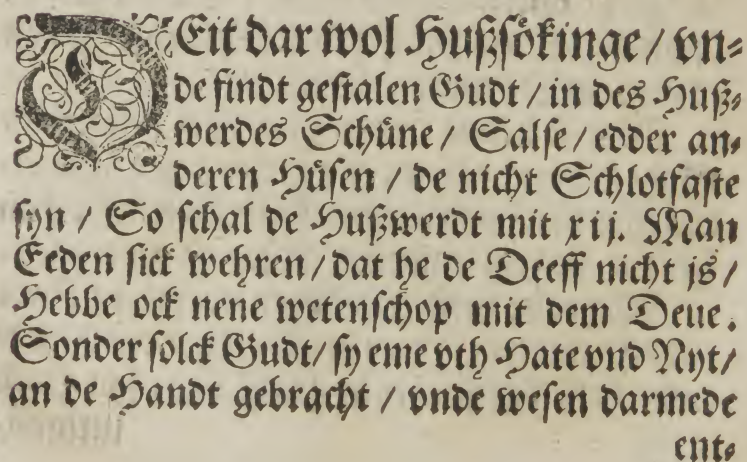 DEit dar wol Hußsökinge / vn⸗
de findt gestalen Gudt / in des Huß⸗
werdes Schüne / Salse / edder an⸗
deren Hüsen / de nicht Schlotfaste
syn / So schal de Hußwerdt mit xij. Man
Eeden sick wehren / dat he de Deeff nicht js /
Hebbe ock nene wetenschop mit dem Deue.
Sonder solck Gudt / sy eme vth Hate vnd Nyt /
an de Handt gebracht / vnde wesen darmede
ent⸗